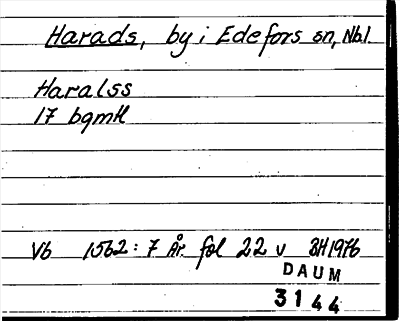 Harads, by i Edefors sn, Nbl
Haralss
17 bgmtl
Vb 1562: 7 År. fol 22 v BH 1976
DAUM
3144